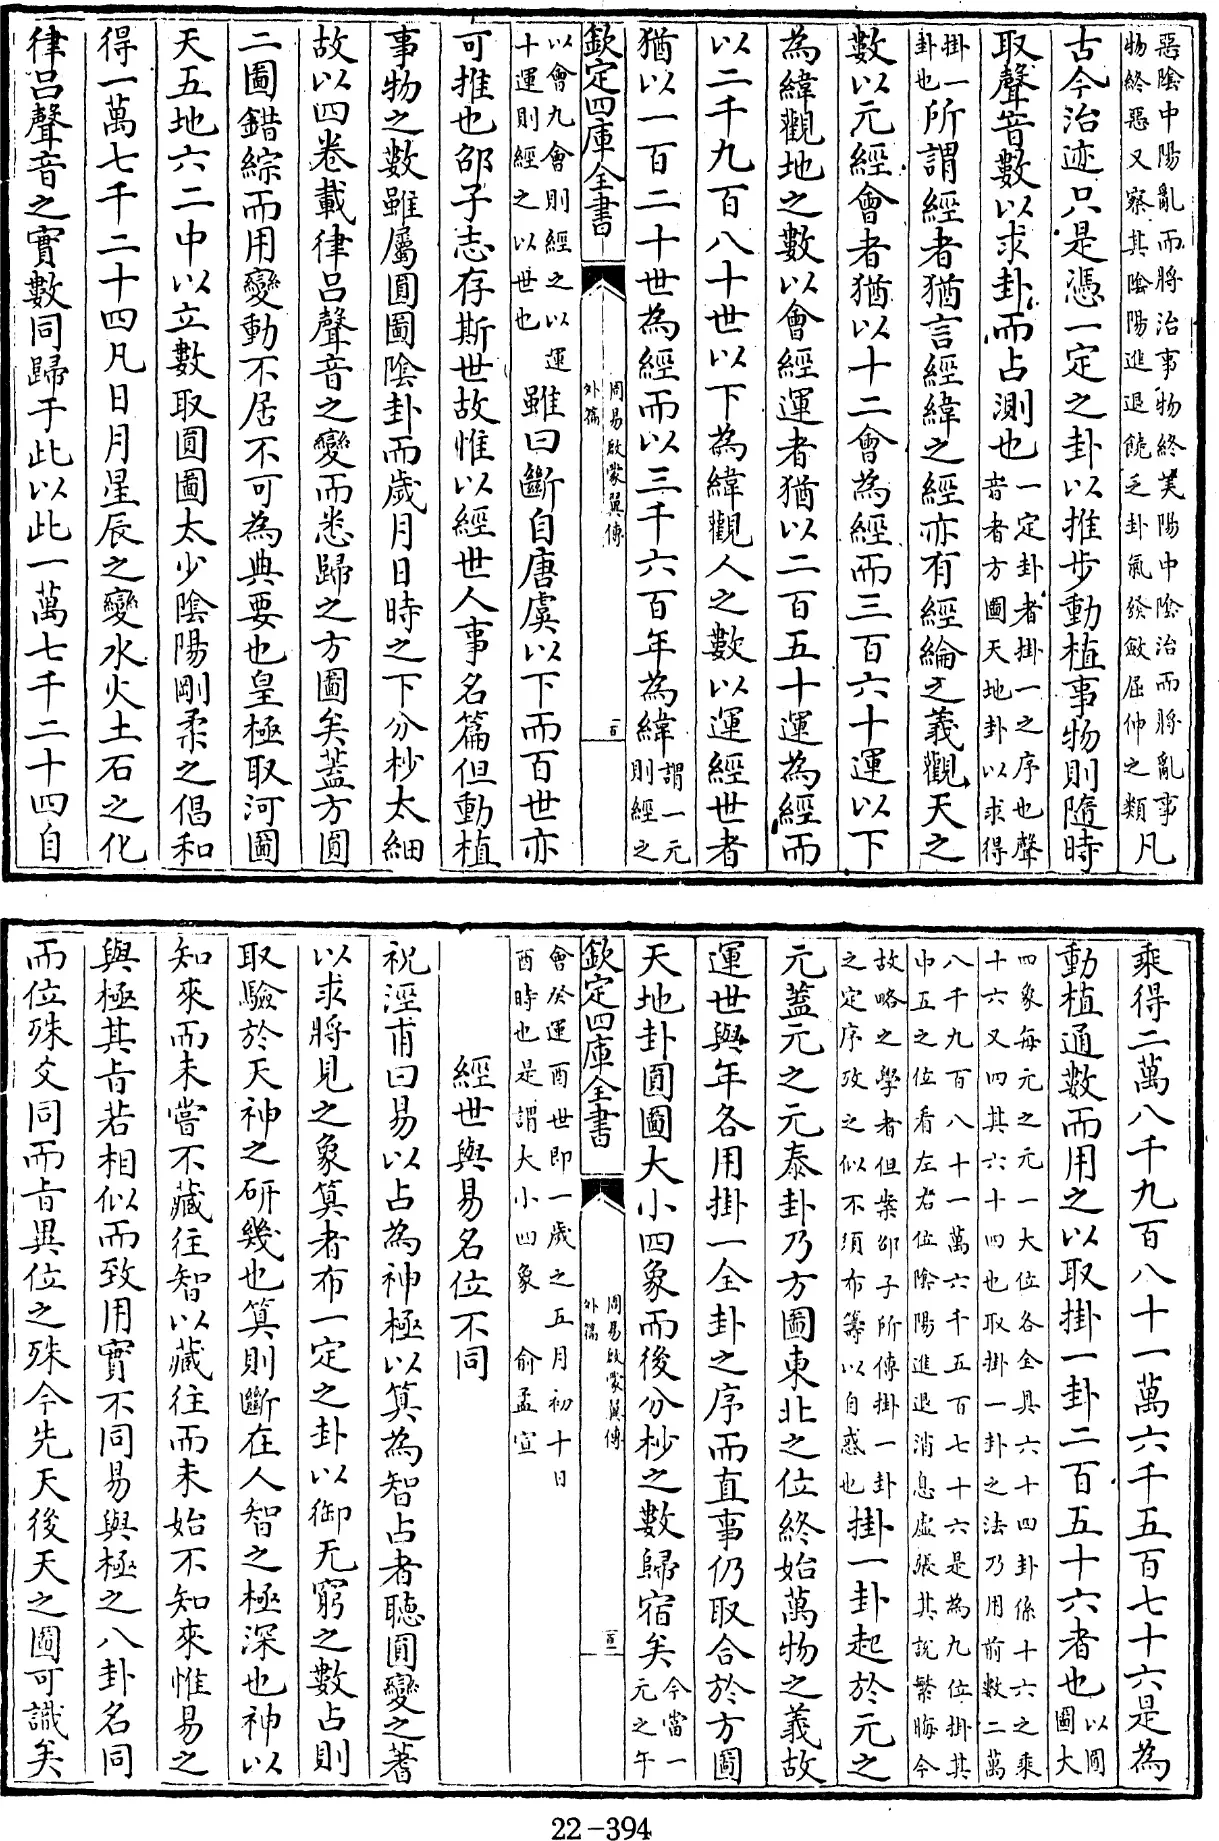 惡陰中陽亂而將治事物終美陽中陰治而將亂事
物終惡又察其陰陽進退饒乏卦氣發斂屈伸之類凡
古今治迹只是憑一定之卦以推步動植事物則隨時
取聲音數以求卦而占測也一定卦者掛一之序也聲
音者方圖天地卦以求得
掛一
卦也所謂經者猶言經緯之經亦有經綸之義觀天之
數以元經會者猶以十二會為經而三百六十運以下
為緯觀地之數以會經運者猶以二百五十運為經而
以二千九百八十世以下為緯觀人之數以運經世者
猶以一百二十世為經而以三千六百年為緯謂一元
則經之
欽定四庫全書
周易啟蒙翼傳
外篇
一百
以會九會則經之以運
十運則經之以世也雖曰斷自唐虞以下而百世亦
可推也邵子志存斯世故惟以經世人事名篇但動植
事物之數雖屬圓圖陰卦而歲月日時之下分杪太細
故以四卷載律呂聲音之變而悉歸之方圖矣蓋方圓
二圖錯綜而用變動不居不可為典要也皇極取河圖
天五地六二中以立數取圓圖太少陰陽剛柔之倡和
得一萬七千二十四凡日月星辰之變水火土石之化
律呂聲音之實數同歸于此以此一萬七千二十四自
乘得二萬八千九百八十一萬六千五百七十六是為
動植通數而用之以取掛一卦二百五十六者也以圓
圖大
四象每元之元一大位各全具六十四卦係十六之乘
十六又四其六十四也取掛一卦之法乃用前數二萬
八千九百八十一萬六千五百七十六是為九位掛其
中五之位看左右位陰陽進退消息虛張其說繁晦今
故略之學者但案邵子所傳掛一卦
之定序攷之似不須布筭以自惑也掛一卦起於元之
元蓋元之元泰卦乃方圖東北之位終始萬物之義故
運世與年各用掛一全卦之序而直事仍取合於方圖
天地卦圓圖大小四象而後分杪之數歸宿矣今當一
元之午
欽定四庫全書
周易啟蒙翼傳
外篇
一百一
會癸運酉世即一歲之五月初十日
酉時也是謂大小四象　俞孟宣
經世與易名位不同
祝涇甫曰易以占為神極以筭為智占者聽圓變之蓍
以求將見之象筭者布一定之卦以御无窮之數占則
取驗於天神之研幾也筭則斷在人智之極深也神以
知來而未嘗不藏往智以藏往而未始不知來惟易之
與極其旨若相似而致用實不同易與極之八卦名同
而位殊文同而旨異位之殊今先天後天之圖可識矣
22-394